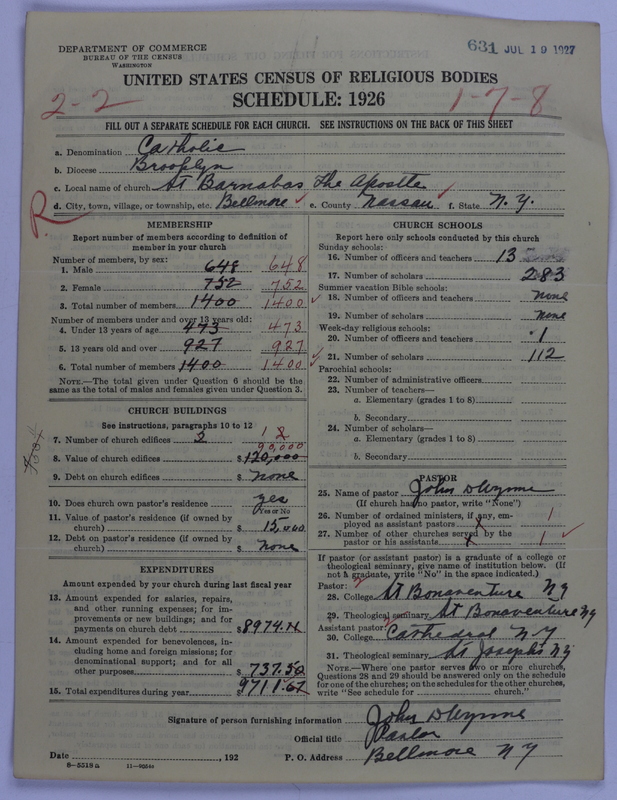 DEPARTMENT OF COMMERCE
BUREAU OF THE CENSUS
WASHINGTON
631 JUL 19 1927
UNITED STATES CENSUS OF RELIGIOUS BODIES
SCHEDULE: 1926
2-2
1-7-8
FILL OUT A SEPARATE SCHEDULE FOR EACH CHURCH. SEE INSTRUCTIONS ON THE BACK OF THIS SHEET
a. Denomination Catholic
b. Diocese Brooplyn
c. Local name of church St Barnabas The Apostle
d. City, town, village, or township, etc. Bellmore e. County Nassau f. State N.Y.
R
MEMBERSHIP
Report number of members according to definition of
member in your church
Number of members, by sex:
1. Male 648 648
2. Female 752 752
3. Total number of members 1400 1400
Number of members under and over 13 years old:
4. Under 13 years of age 473 473
5. 13 years old and over 927 927
6. Total number of members 1400 1400
NOTE.—The total given under Question 6 should be the
same as the total of males and females given under Question 3.
CHURCH BUILDINGS
See instructions, paragraphs 10 to 12
7. Number of church edifices 1
90,000
8. Value of church edifices $120,000
9. Debt on church edifices $ none
10. Does church own pastor's residence yes
Yes or No
11. Value of pastor's residence (if owned by
church) $ 15,000
12. Debt on pastor's residence (if owned by
church) $ none
EXPENDITURES
Amount expended by your church during last fiscal year
13. Amount expended for salaries, repairs,
and other running expenses; for im-
provements or new buildings; and for
payments on church debt $8974.
14. Amount expended for benevolences, in-
cluding home and foreign missions; for
denominational support; and for all
other purposes $ 737.50
15. Total expenditures during year $9711.67
CHURCH SCHOOLS
Report here only schools conducted by this church
Sunday schools:
16. Number of officers and teachers 13
17. Number of scholars 283
Summer vacation Bible schools:
18. Number of officers and teachers none
19. Number of scholars none
Week-day religious schools:
20. Number of officers and teachers 1
21. Number of scholars 112
Parochial schools:
22. Number of administrative officers
23. Number of teachers—
a. Elementary (grades 1 to 8)
b. Secondary
24. Number of scholars—
a. Elementary (grades 1 to 8)
b. Secondary
PASTOR
25. Name of pastor John D Wynne
(If church has no pastor, write "None")
26. Number of ordained ministers, if any, em-
ployed as assistant pastors x 1
27. Number of other churches served by the
pastor or his assistants x 1
If pastor (or assistant pastor) is a graduate of a college or
theological seminary, give name of institution below. (If
not a graduate, write "No" in the space indicated.)
Pastor:
28. College St Bonaventure NY
29. Theological seminary St Bonaventure NY
Assistant pastor:
30. College Cathedral NY
31. Theological seminary St Josephs NY
NOTE.—Where one pastor serves two or more churches,
Questions 28 and 29 should be answered only on the schedule
for one of the churches; on the schedules for the other churches,
write "See schedule for church."
Signature of person furnishing information John D Wynne
Official title Pastor
Date , 192 P. O. Address Bellmore NY
8-5518a